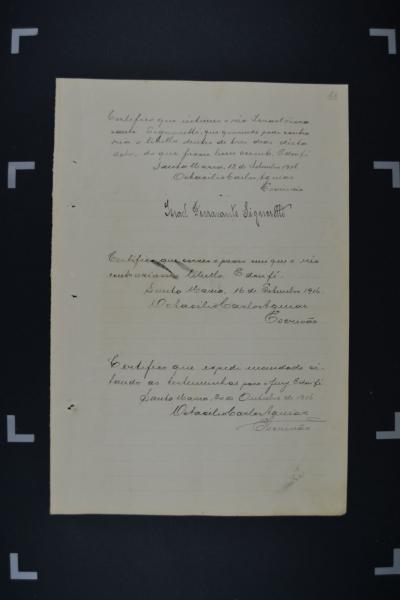 Certifico que intimei o réo Israel Ferra
rante Signoretti, que querendo pode contra
riar o libello dentro de tres dias desta
data, do que ficou bem sciente. E dou fé
Santa Maria, 12 de Setembro 1916
Octacilio Carlos Aguiar
Escrivão
Israel Ferrarante Signoretti
Certifico que correu o prazo sem que o réo
contrariasse libello. E dou fé.
Santa Maria, 16 de Setembro 1916.
Octacilio Carlos Aguiar
Escrivão
Certifico que expedi mandado ci-
tando as testemunhas para o jury. E dou fé
Santa Maria, 20 de Outubro de 1916
Octacilio Carlos Aguiar
Escrivão